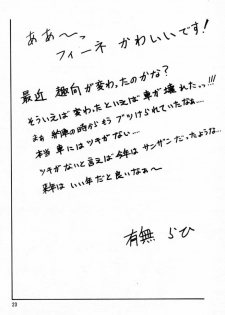 ああ～っ
フィーネ かわいいです！
最近 趣向が変わったのかな？
そういえば変わったといえば車が壊れたっ!!!
まぁ 約束の時からもうブツけられていたなぁ…
本当 車にはツキがない…
ツキがないと言えば今年はサンザンだったような…
来年は いい年だと良いなぁ～
有無 らひ
23